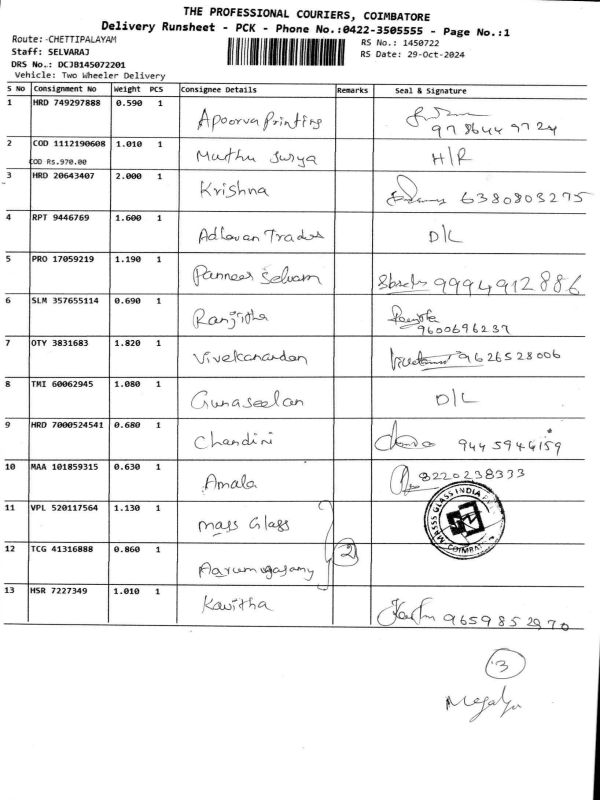 THE PROFESSIONAL COURIERS, COIMBATORE
Delivery Runsheet - PCK - Phone No.:0422-3505555 - Page No.:1
Route:-CHETTIPALAYAM
RS No.: 1450722
Staff: SELVARAJ
RS Date: 29-Oct-2024
DRS No.: DCJB145072201
Vehicle: Two Wheeler Delivery
S No Consignment No Weight PCS Consignee Details Remarks Seal & Signature
1 HRD 749297888 0.590 1 Apoorva Printing
2 COD 1112190608 1.010 1 Muthu Surya H/R
COD Rs.970.00
3 HRD 20643407 2.000 1 Krishna 6380803275
4 RPT 9446769 1.600 1 Adhavan Trades D/L
5 PRO 17059219 1.190 1 Panneer Selvam 9994912886
6 SLM 357655114 0.690 1 Ranjitha
9600696237
7 OTY 3831683 1.820 1 Vivekanandan 9626528006
8 TMI 60062945 1.080 1 Gunaseelan D/L
9 HRD 7000524541 0.680 1 Chandini 9445946159
10 MAA 101859315 0.630 1 Amala 8220238333
11 VPL 520117564 1.130 1 Mass Glass
MASSS GLASS INDIA
COIMBAT
12 TCG 41316888 0.860 1 Aarumugasamy 2
13 HSR 7227349 1.010 1 Kavitha 9659852970
3